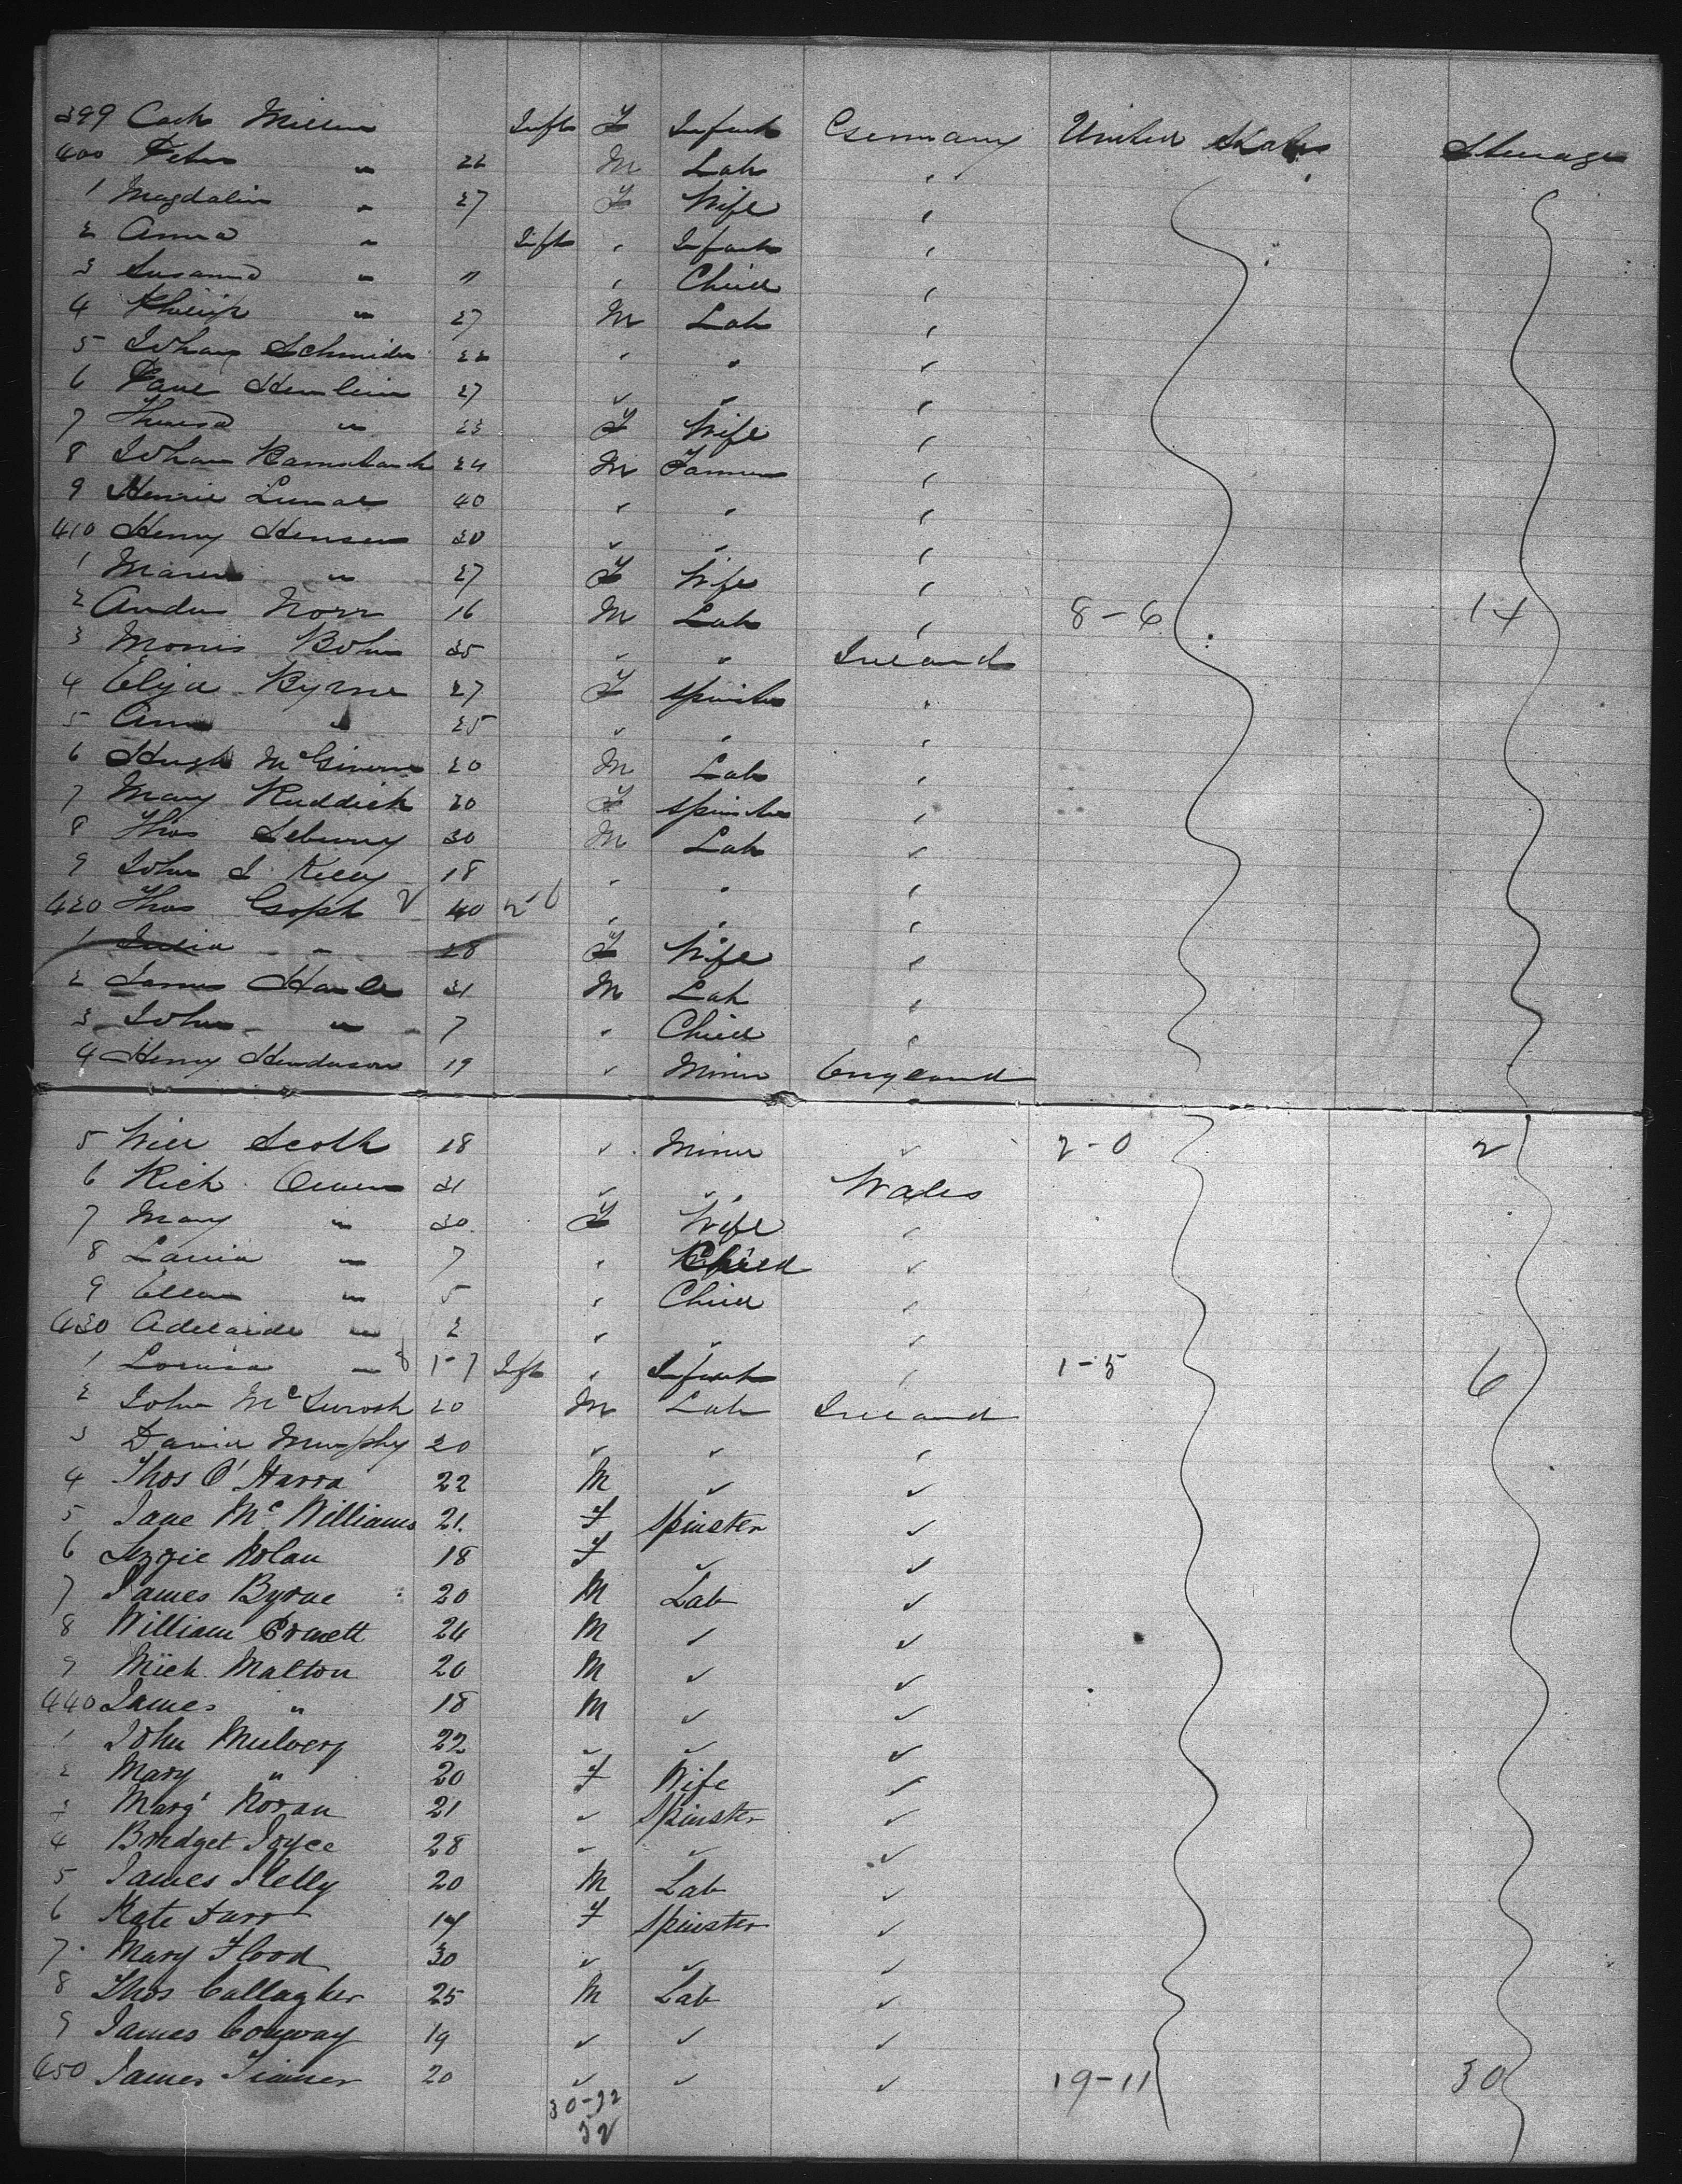 399 Cath Miller Inft F Infant Germany United States Steerage
400 Peter " 22 M Lab "
1 Magdalin " 27 F Wife "
2 Anna " Inft " Infant "
3 Susanna " " " Child "
4 Philip " 27 M Lab "
5 Johan Schmider 22 " " "
6 Paul Hemlein 27 " " "
7 Theresa " 23 F Wife "
8 Johan 24 M Farmer "
9 Henrie 40 " " "
410 Henry Hensen 30 " " "
1 Maren " 27 F Wife "
2 Andus Norr 16 M Lab " 8-6 14
3 Morris 35 " " Ireland
4 Eliza Byrne 27 F Spinster "
5 Ann " 25 " " "
6 Hugh McGivern 20 M Lab "
7 Mary Ruddick 20 F Spinster "
8 Thos 30 M Lab "
9 John J Kelly 18 " " "
420 Thos 40 " " "
1 Julia " 28 F Wife "
2 James 31 M Lab "
3 John " 7 " Child "
4 Henry Henderson 19 " Miner England
5 Will Scott 18 " Miner " 2-0 2
6 Rich Owens 31 " " Wales
7 Mary " 30 F Wife "
8 " 7 " Child "
9 Ellen " 5 " Child "
430 Adelaide " 2 " " "
1 Louisa " Inft " Infant " 1-5 6
2 John McIntosh 20 M Lab Ireland
3 David Murphy 20 " " "
4 Thos O'Harra 22 M " "
5 Jane McWilliams 21. F Spinster "
6 Lizzie Nolan 18 F " "
7 James Byrne 20 M Lab "
8 William 24 M " "
9 Mich. Malton 20 M " "
440 James " 18 M " "
1 John Mulvery 22 " " "
2 Mary " 20 F Wife "
3 Margt Horan 21 " Spinster "
4 Bridget Joyce 28 " " "
5 James 20 M Lab "
6 Kate 14 F Spinster "
7 Mary Flood 30 " " "
8 Thos Callagher 25 M Lab "
9 James Conway 19 " " "
450 James 20 " " " 19-11 30
30-22
52